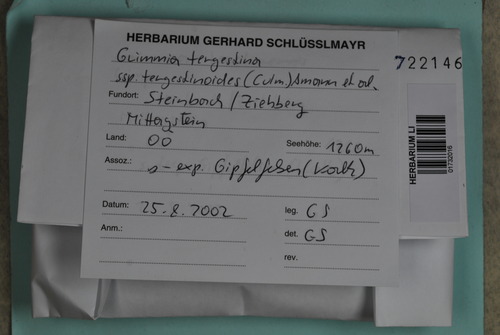 HERBARIUM GERHARD SCHLÜSSLMAYR
Grimmia tergestina
ssp. tergestinoides (Culm) Amann et al.
Fundort: Steinbach / Ziehberg
Mittagstein
Land: OÖ Seehöhe: 1260m
Assoz.: s-exp. Gipfelfelsen (Kalk)
Datum: 25.8.2002 leg. GS
Anm.: det. GS
rev.
722146
HERBARIUM LI
01732016